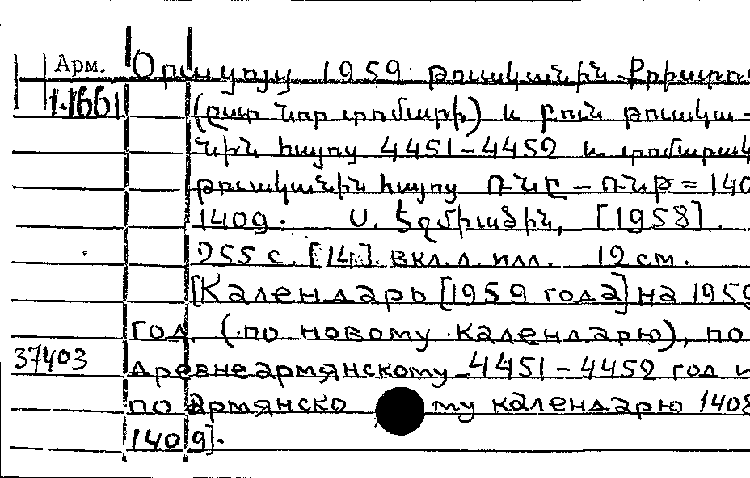 Арм.
1.1661
Օրացոյց 1959 թուականին Քրիստո
(ըստ նոր տոմարի) և բուն թուակա-
նին հայոց 4451-4452 և տոմարակ
թուականին հայոց ՌՆԸ - ՌՆԹ = 140
1409. Ս. Էջմիածին, [1958].
255 с. [14] вкл. л. илл. 19 см.
[Календарь [1959 года] на 1959
год. (по новому календарю), по
37403
древнеармянскому 4451-4452 год и
по армянскому календарю 1408
1409].